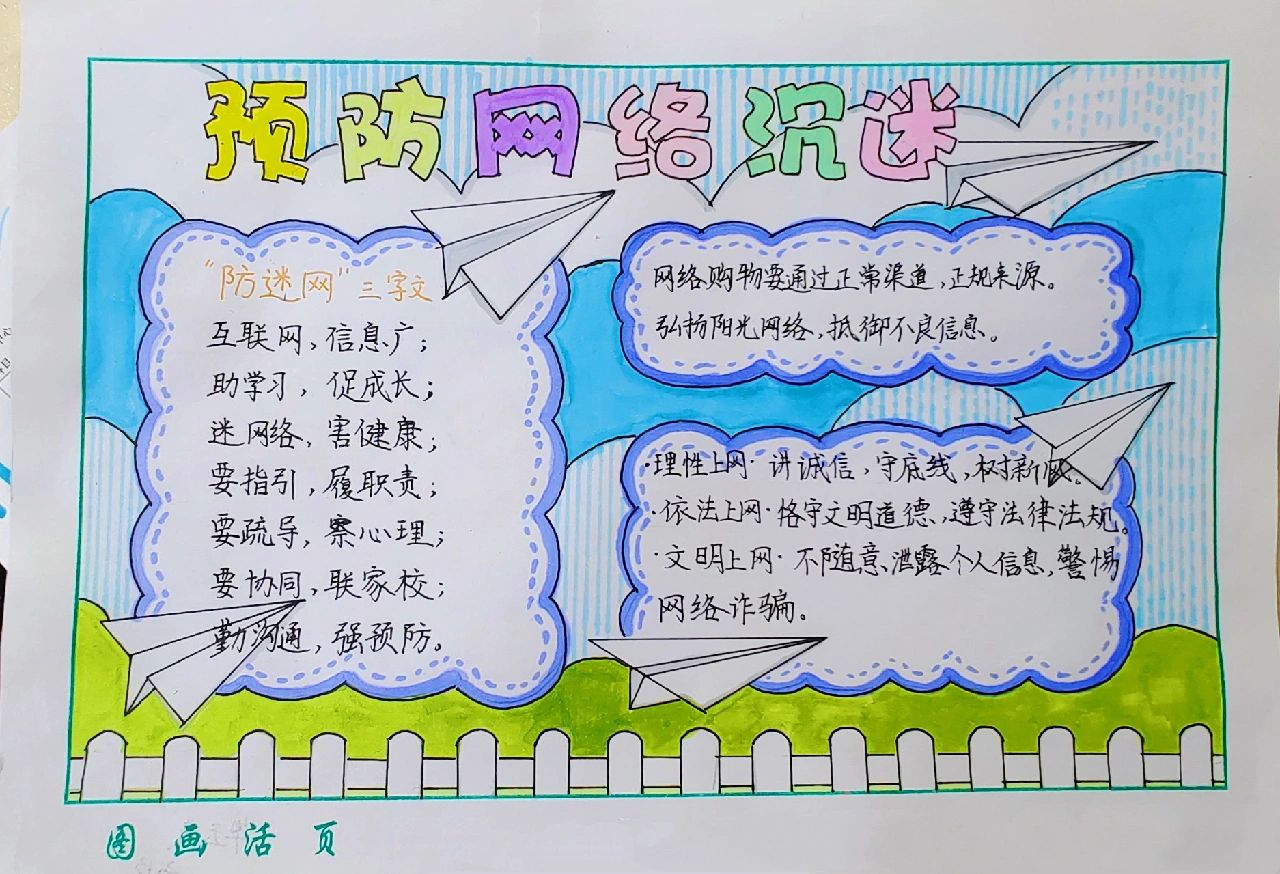 预防网络沉迷
“防迷网”三字文
互联网，信息广；
助学习，促成长；
迷网络，害健康；
要指引，履职责；
要疏导，察心理；
要协同，联家校；
勤沟通，强预防。
网络购物要通过正常渠道，正规来源。
弘扬阳光网络，抵御不良信息。
·理性上网·讲诚信，守底线，树新风。
·依法上网·恪守文明道德，遵守法律法规。
·文明上网·不随意泄露个人信息，警惕
网络诈骗。
图画活页